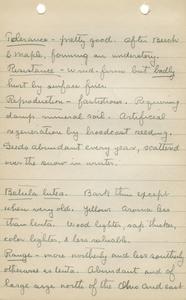 Tolerance - pretty good. After Beech
& maple, forming an understory.
Resistance - wind-firm but badly
hurt by surface fires.
Reproduction - fastidious. Requiring
damp, mineral soil. Artificial
regeneration by broadcast seeding.
Seeds abundant every year, scattered
over the snow in winter.
Betula lutea. Bark thin except
when very old. Yellow. Aroma less
than lenta. Wood lighter, sap thicker,
color lighter, & less valuable.
Range - more northerly and less southerly
otherwise as lenta. Abundant and of
large size north of the Ohio and east